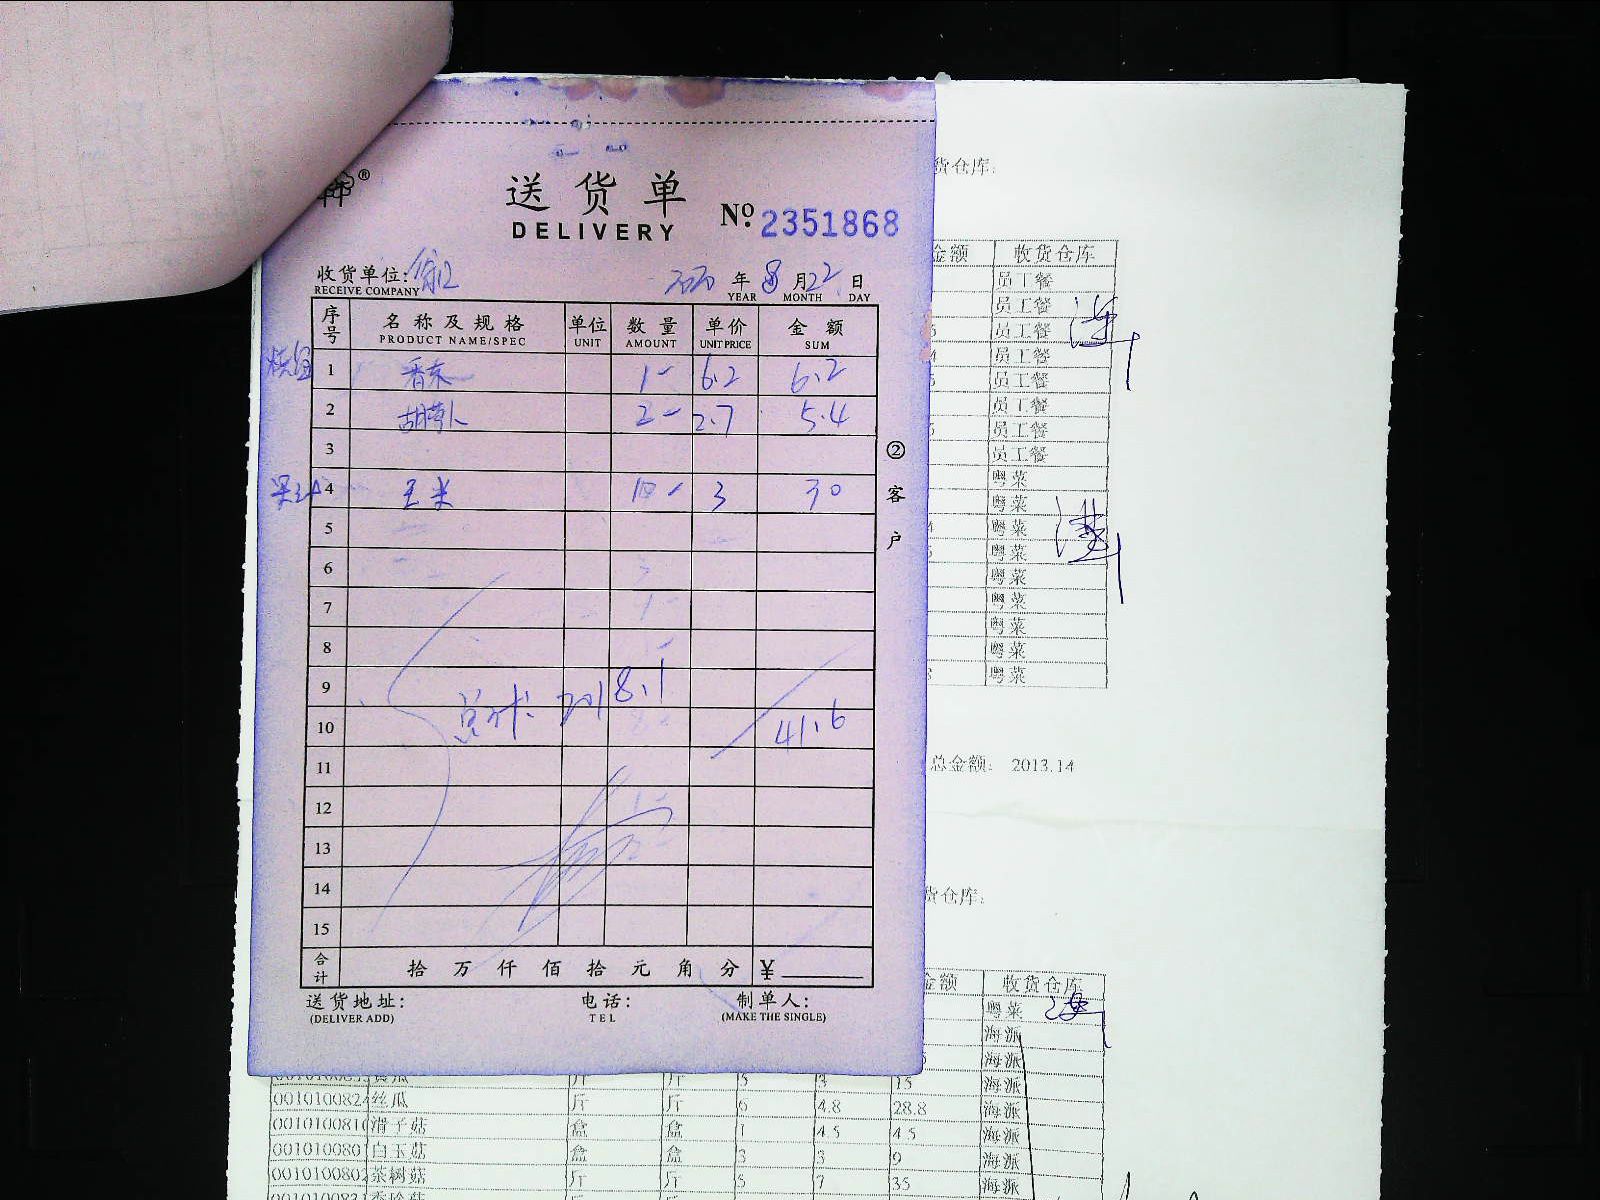 送货单
DELIVERY
№ 2351868
收货单位:
RECEIVE COMPANY
2020 年 8 月 22 日
YEAR MONTH DAY
序号 名称及规格 单位 数量 单价 金额
PRODUCT NAME/SPEC UNIT AMOUNT UNIT PRICE SUM
1 1- 6.2 6.2
2 胡萝卜 2- 2.7 5.4
3
4 玉米 10- 3 30
5
6
7
8
9
总计: 2018.1
10 41.6
11
12
13
14
15
合计 拾 万 仟 佰 拾 元 角 分 ¥
送货地址: 电话: 制单人:
(DELIVER ADD) TEL (MAKE THE SINGLE)
②客户
货仓库:
金额 收货仓库
员工餐
员工餐
员工餐
员工餐
员工餐
员工餐
员工餐
员工餐
粤菜
粤菜
粤菜
粤菜
粤菜
粤菜
粤菜
粤菜
粤菜
总金额: 2013.14
货仓库:
金额 收货仓库
粤菜
海派
海派
斤 斤 5 3 15 海派
001010082 丝瓜 斤 斤 6 4.8 28.8 海派
001010081 滑子菇 盒 盒 1 4.5 4.5 海派
001010080 白玉菇 盒 盒 3 3 9 海派
001010080 茶树菇 斤 斤 5 7 35 海派